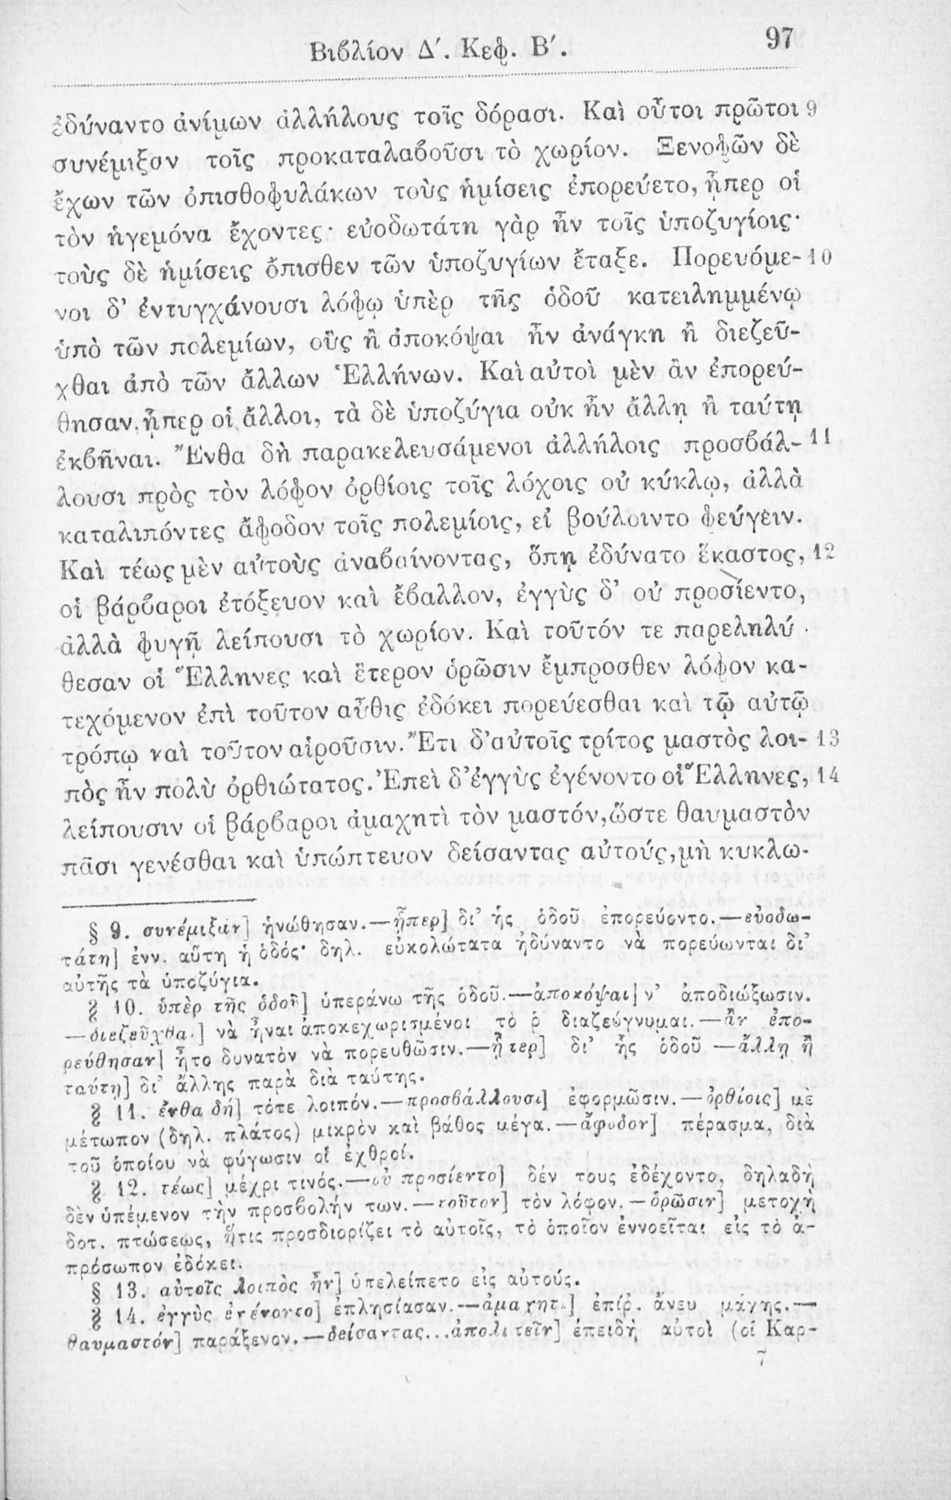 Βιβλίον Δ΄. Κεφ. Β΄. 97
ἐδύναντο ἀνίμων ἀλλήλους τοῖς δόρασι. Καὶ οὗτοι πρῶτοι 9
συνέμιξαν τοῖς προκαταλαβοῦσι τὸ χωρίον. Ξενοφῶν δὲ
ἔχων τῶν ὀπισθοφυλάκων τοὺς ἡμίσεις ἐπορεύετο, ᾗπερ οἱ
τὸν ἡγεμόνα ἔχοντες· εὐοδωτάτη γὰρ ἦν τοῖς ὑποζυγίοις·
τοὺς δὲ ἡμίσεις ὄπισθεν τῶν ὑποζυγίων ἔταξε. Πορευόμε- 10
νοι δ’ ἐντυγχάνουσι λόφῳ ὑπὲρ τῆς ὁδοῦ κατειλημμένῳ
ὑπὸ τῶν πολεμίων, οὓς ἢ ἀποκόψαι ἦν ἀνάγκη ἢ διεζεῦ-
χθαι ἀπὸ τῶν ἄλλων Ἑλλήνων. Καὶ αὐτοὶ μὲν ἂν ἐπορεύ-
θησαν, ᾗπερ οἱ ἄλλοι, τὰ δὲ ὑποζύγια οὐκ ἦν ἄλλῃ ἢ ταύτῃ
ἐκβῆναι. Ἔνθα δὴ παρακελευσάμενοι ἀλλήλοις προσβάλ- 11
λουσι πρὸς τὸν λόφον ὀρθίοις τοῖς λόχοις οὐ κύκλῳ, ἀλλὰ
καταλιπόντες ἄφοδον τοῖς πολεμίοις, εἰ βούλοιντο φεύγειν.
Καὶ τέως μὲν αὐτοὺς ἀναβαίνοντας, ὅπῃ ἐδύνατο ἕκαστος, 12
οἱ βάρβαροι ἐτόξευον καὶ ἔβαλλον, ἐγγὺς δ’ οὐ προσίεντο,
ἀλλὰ φυγῇ λείπουσι τὸ χωρίον. Καὶ τοῦτόν τε παρεληλύ-
θεσαν οἱ Ἕλληνες καὶ ἕτερον ὁρῶσιν ἔμπροσθεν λόφον κα-
τεχόμενον ἐπὶ τοῦτον αὖθις ἐδόκει πορεύεσθαι καὶ τῷ αὐτῷ
τρόπῳ καὶ τοῦτον αἱροῦσιν. Ἔτι δ’ αὐτοῖς τρίτος μαστὸς λοι- 13
πὸς ἦν πολὺ ὀρθιώτατος. Ἐπεὶ δ’ ἐγγὺς ἐγένοντο οἱ Ἕλληνες, 14
λείπουσιν οἱ βάρβαροι ἀμαχητὶ τὸν μαστόν, ὥστε θαυμαστὸν
πᾶσι γενέσθαι καὶ ὑπώπτευον δείσαντας αὐτούς, μὴ κυκλω-
§ 9. συνέμιξαν] ἡνώθησαν.—ᾗπερ] δι’ ἧς ὁδοῦ ἐπορεύοντο.—εὐοδω-
τάτη] ἐνν. αὕτη ἡ ὁδός· δηλ. εὐκολώτατα ἠδύναντο νὰ πορεύωνται δι’
αὐτῆς τὰ ὑποζύγια.
§ 10. ὑπὲρ τῆς ὁδοῦ] ὑπεράνω τῆς ὁδοῦ.—ἀποκόψαι] ν’ ἀποδιώξωσιν.
—διεζεῦχθαι] νὰ ἦναι ἀποκεχωρισμένοι τὸ ῥ διαζεύγνυμαι.—ἂν ἐπο-
ρεύθησαν] ἦτο δυνατὸν νὰ πορευθῶσιν.—ᾗπερ] δι’ ἧς ὁδοῦ —ἄλλῃ ἢ
ταύτῃ] δι’ ἄλλης παρὰ διὰ ταύτης.
§ 11. ἔνθα δὴ] τότε λοιπόν.—προσβάλλουσι] ἐφορμῶσιν.—ὀρθίοις] μὲ
μέτωπον (δηλ. πλάτος) μικρὸν καὶ βάθος μέγα.—ἄφοδον] πέρασμα, διὰ
τοῦ ὁποίου νὰ φύγωσιν οἱ ἐχθροί.
§ 12. τέως] μέχρι τινός.—οὐ προσίεντο] δέν τους ἐδέχοντο, δηλαδὴ
δὲν ὑπέμενον τὴν προσβολήν των.—τοῦτον] τὸν λόφον.—ὁρῶσιν] μετοχὴ
δοτ. πτώσεως, ἥτις προσδιορίζει τὸ αὐτοῖς, τὸ ὁποῖον ἐννοεῖται εἰς τὸ ἀ-
πρόσωπον ἐδόκει.
§ 13. αὐτοῖς λοιπὸς ἦν] ὑπελείπετο εἰς αὐτούς.
§ 14. ἐγγὺς ἐγένοντο] ἐπλησίασαν.—ἀμαχητὶ] ἐπίρ. ἄνευ μάχης.—
θαυμαστόν] παράξενον.—δείσαντας...ἀπολιπεῖν] ἐπειδὴ αὐτοὶ (οἱ Καρ-
7